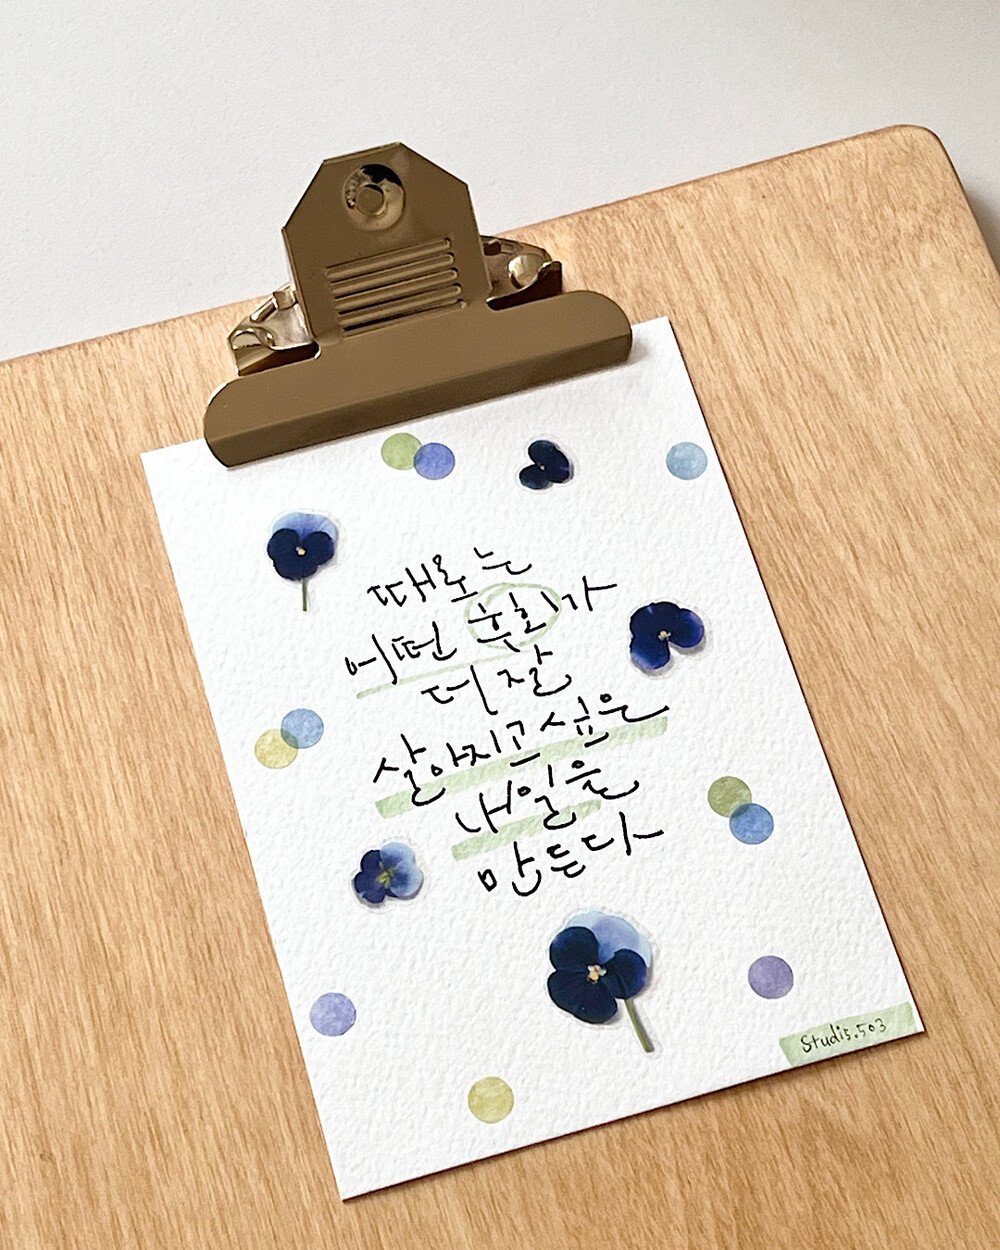 때로는
어떤 후회가
더 잘
살아지고 싶은
내일을
만든다
Studi5.503